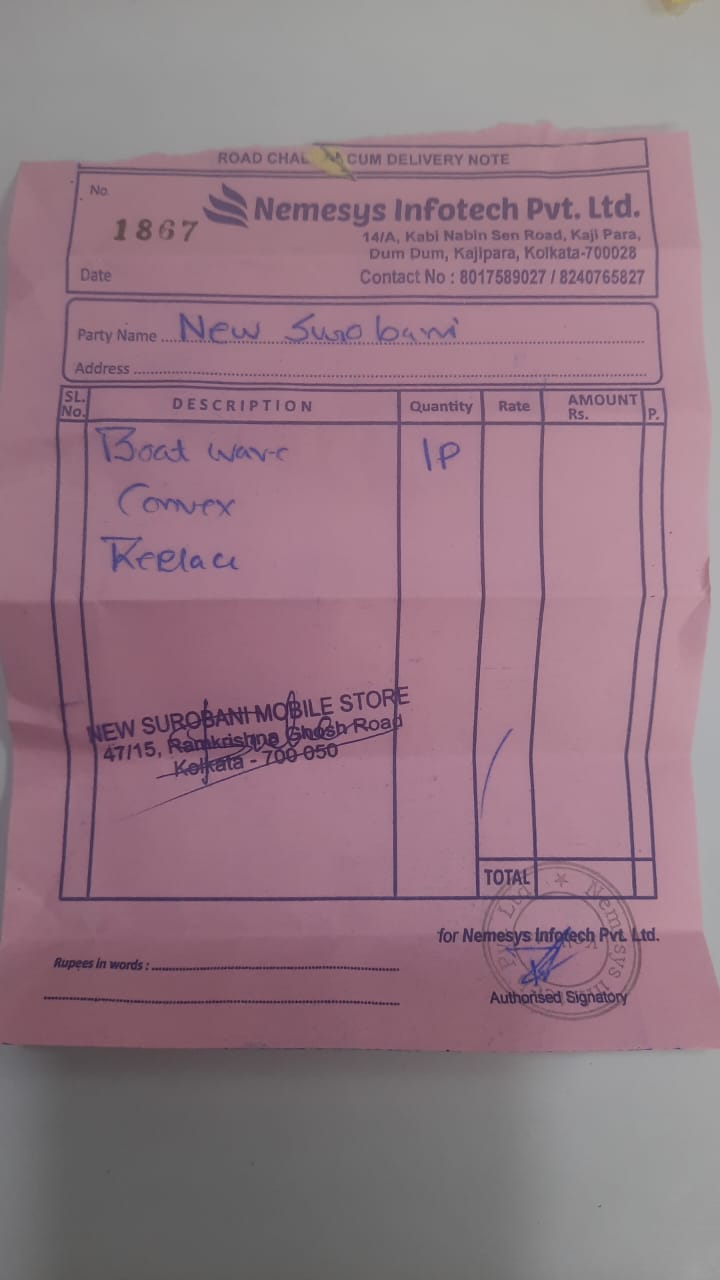 ROAD CHAL CUM DELIVERY NOTE
No.
1867
Nemesys Infotech Pvt. Ltd.
14/A, Kabi Nabin Sen Road, Kaji Para,
Dum Dum, Kajipara, Kolkata-700028
Date
Contact No : 8017589027 / 8240765827
Party Name New Surobani
Address
SL. No. DESCRIPTION Quantity Rate AMOUNT Rs. P.
Boat wave 1P
Convex
Replace
NEW SUROBANI MOBILE STORE
47/15, Ramkrishna Ghosh Road
Kolkata - 700 050
TOTAL
for Nemesys Infotech Pvt. Ltd.
Rupees in words :
Authorised Signatory